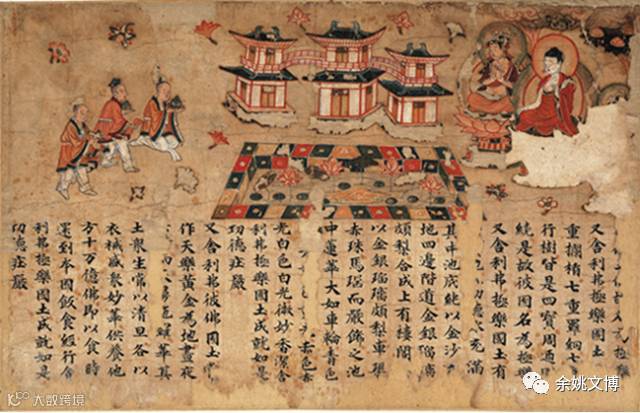 極樂
又舍利弗極樂國土
重攔楯七重羅網七
行樹皆是四寶周迊
繞是故彼國名為極
又舍利弗極樂國土有
功德水充滿
其中池底純以金沙
地四邊階道金銀瑠璃
頗梨合成上有樓閣
以金銀瑠璃頗梨車璖
赤珠馬瑙而嚴飾之池
中蓮華大如車輪青色
赤色赤
光白色白光微妙香潔舍
利弗極樂國土成就如是
功德莊嚴
又舍利弗彼佛國土
作天樂黃金為地晝夜
華其
土衆生常以清旦各以
衣裓盛衆妙華供養他
方十万億佛即以食時
還到本國飯食經行舍
利弗極樂國土成就如是
功德莊嚴
大数跨境
余姚文博